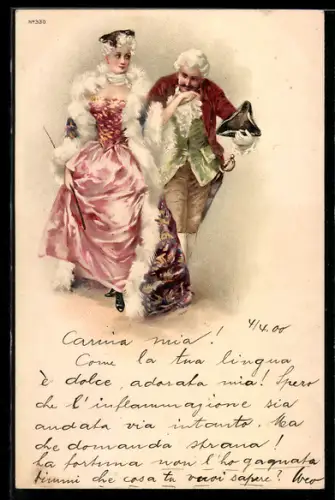 No 330
4/4.00
Carina mia!
Come la tua lingua
è dolce, adorata mia! Spero
che l'inflammazione sia
andata via intanto. Ma
che domanda strana!
la fortuna non l'ho gagnata
dimmi che cosa tu vuoi sapere?